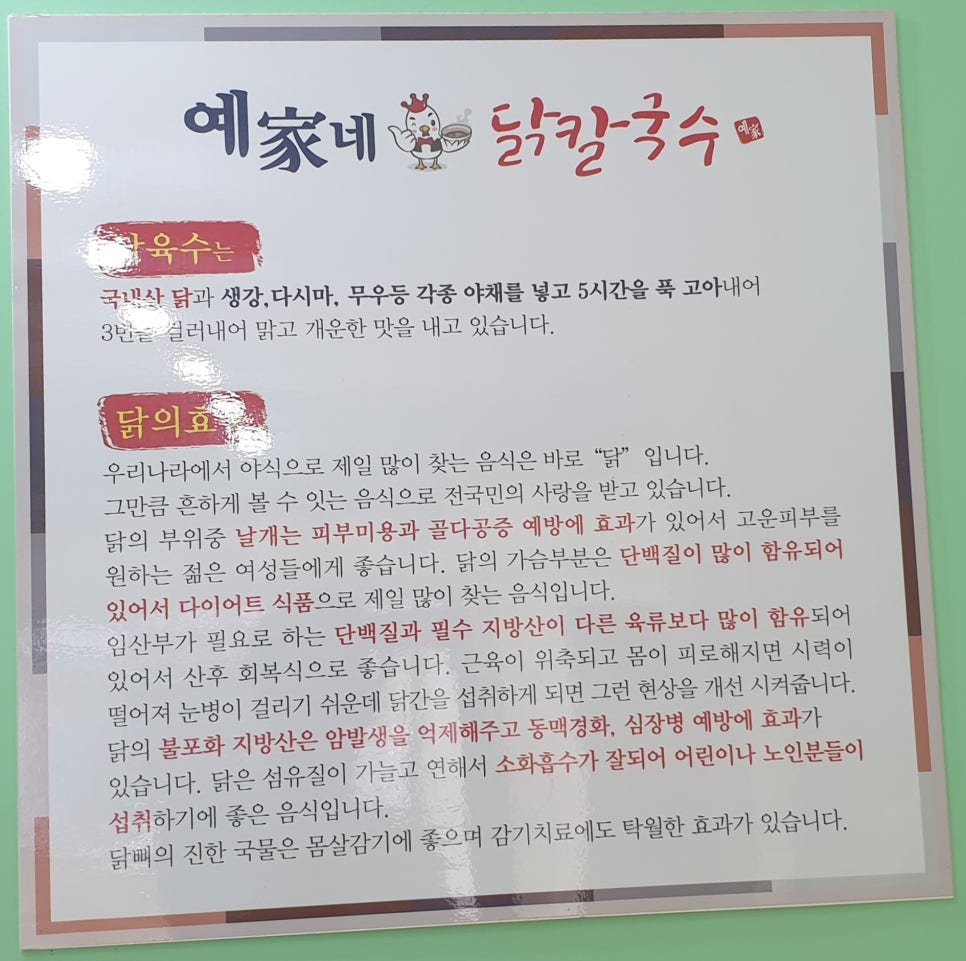 예家네 닭칼국수 예家
육수는
국내산 닭과 생강,다시마, 무우등 각종 야채를 넣고 5시간을 푹 고아내어
3번을 걸러내어 맑고 개운한 맛을 내고 있습니다.
닭의효
우리나라에서 야식으로 제일 많이 찾는 음식은 바로 “닭” 입니다.
그만큼 흔하게 볼 수 잇는 음식으로 전국민의 사랑을 받고 있습니다.
닭의 부위중 날개는 피부미용과 골다공증 예방에 효과가 있어서 고운피부를
원하는 젊은 여성들에게 좋습니다. 닭의 가슴부분은 단백질이 많이 함유되어
있어서 다이어트 식품으로 제일 많이 찾는 음식입니다.
임산부가 필요로 하는 단백질과 필수 지방산이 다른 육류보다 많이 함유되어
있어서 산후 회복식으로 좋습니다. 근육이 위축되고 몸이 피로해지면 시력이
떨어져 눈병이 걸리기 쉬운데 닭간을 섭취하게 되면 그런 현상을 개선 시켜줍니다.
닭의 불포화 지방산은 암발생을 억제해주고 동맥경화, 심장병 예방에 효과가
있습니다. 닭은 섬유질이 가늘고 연해서 소화흡수가 잘되어 어린이나 노인분들이
섭취하기에 좋은 음식입니다.
닭뼈의 진한 국물은 몸살감기에 좋으며 감기치료에도 탁월한 효과가 있습니다.